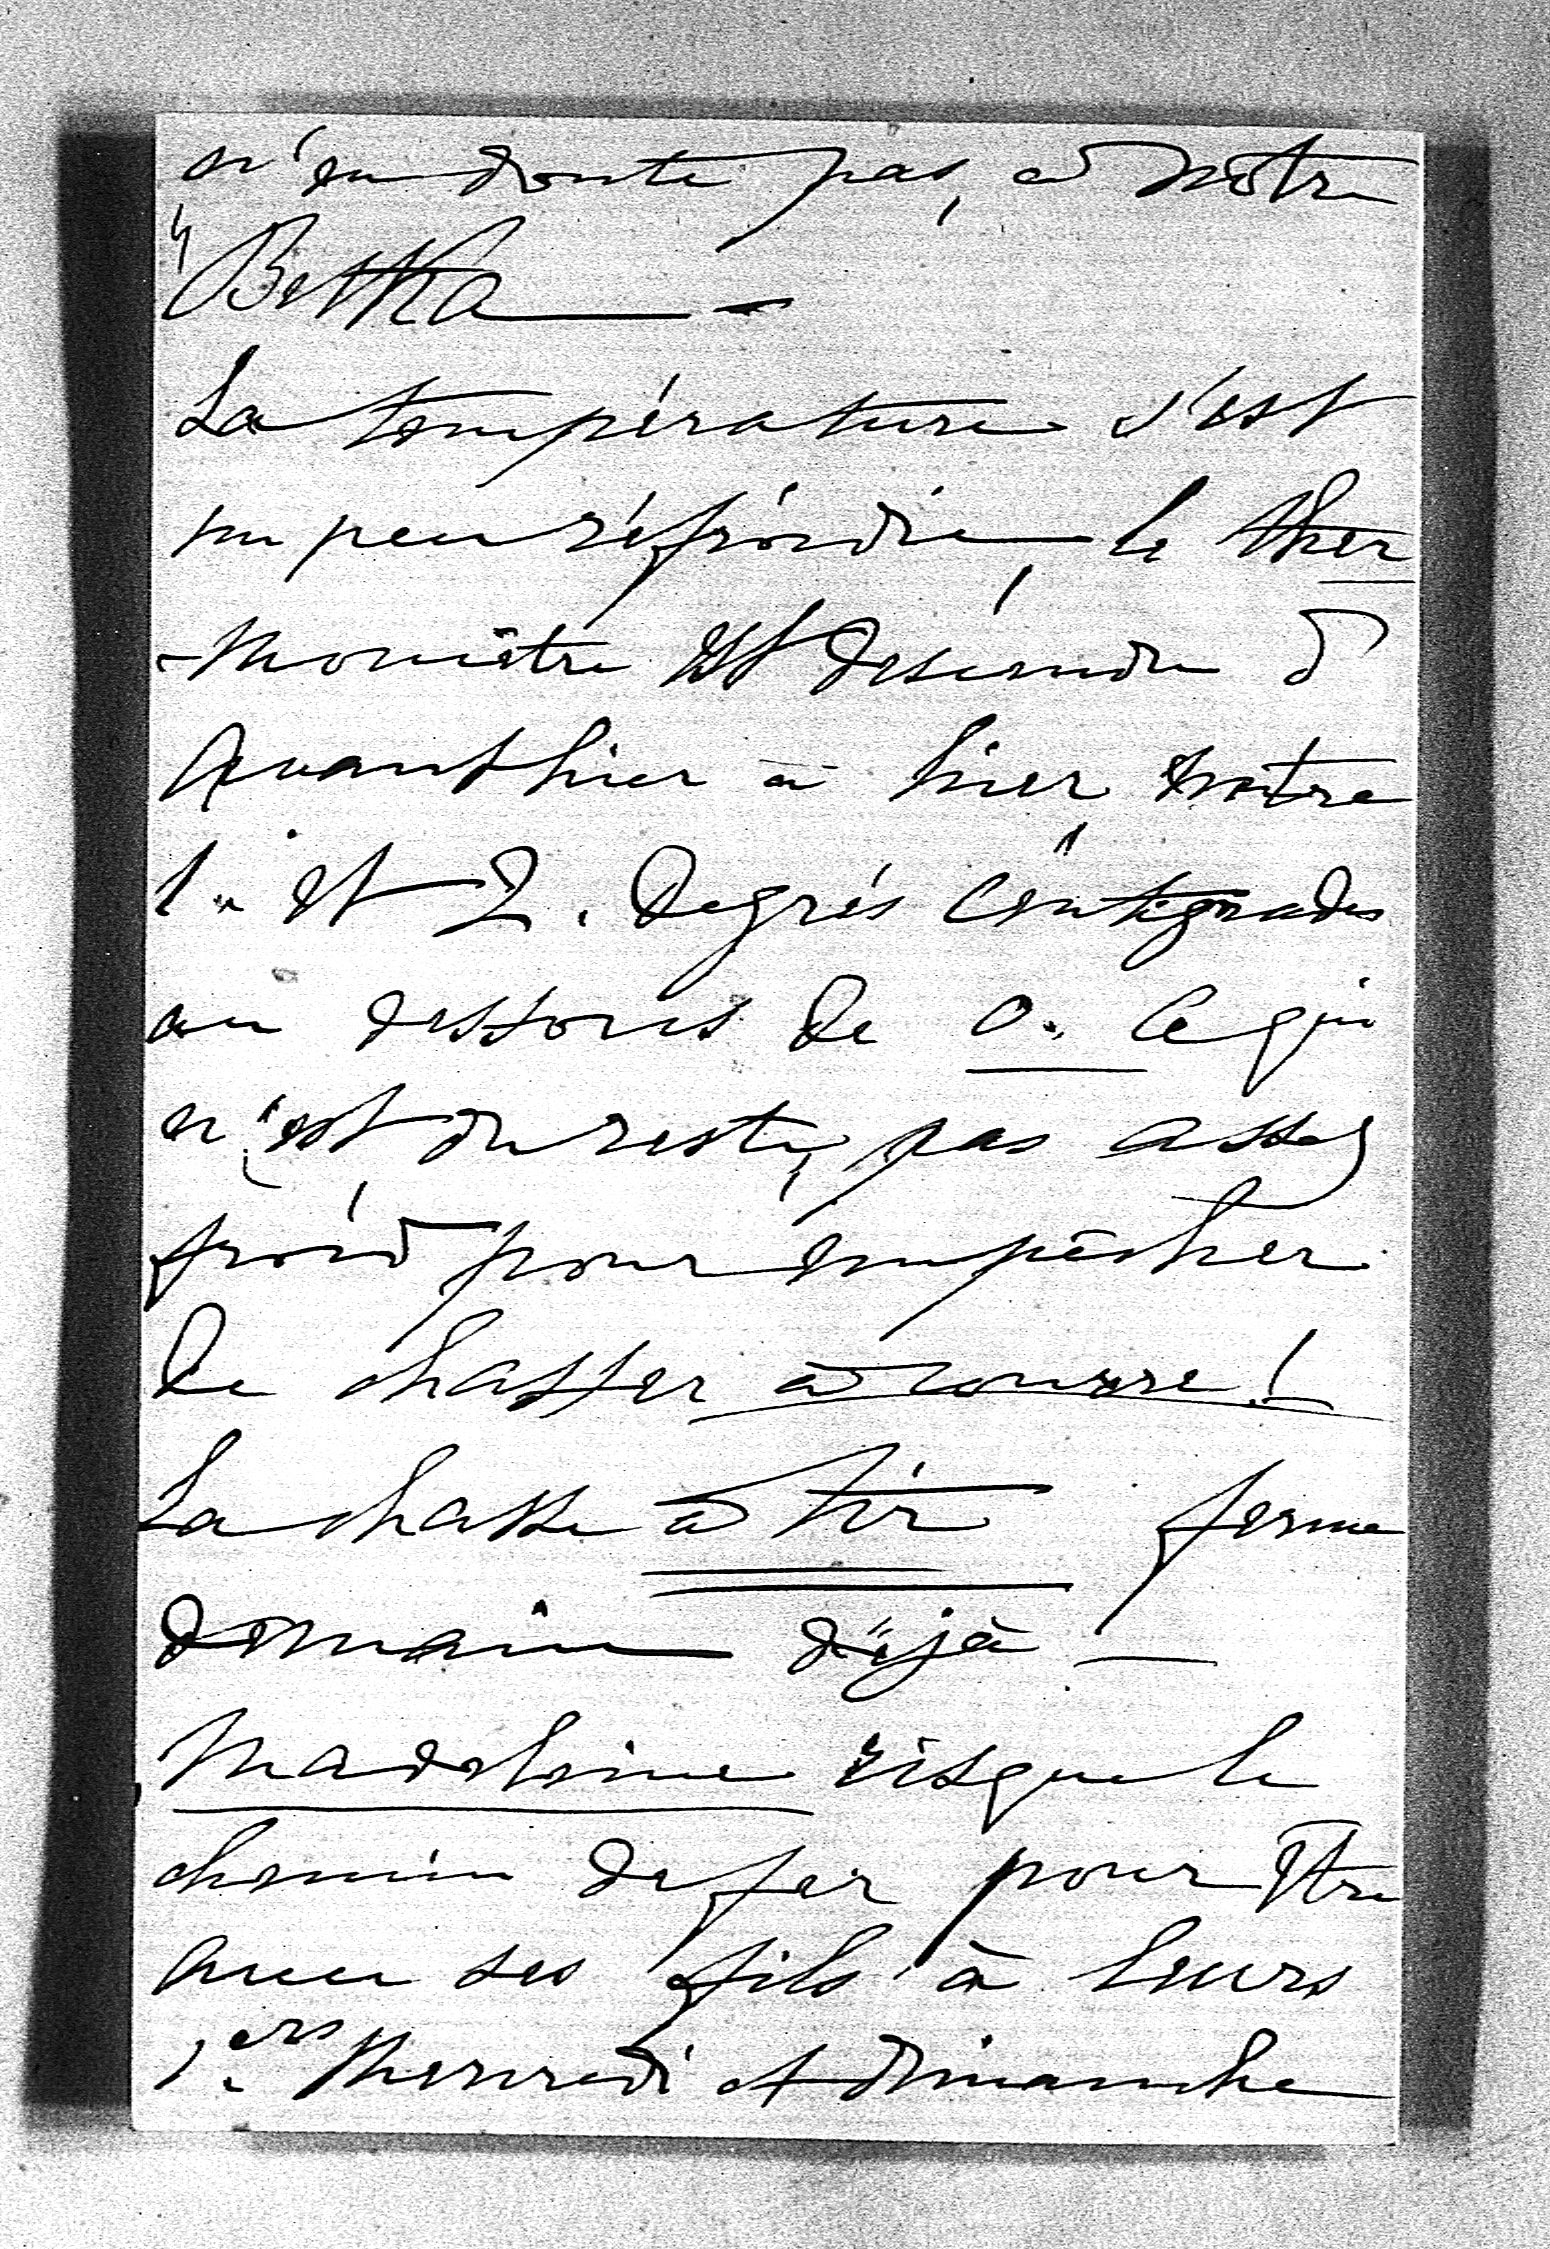 n'en doute pas, à notre
"Betka —
La température s'est
un peu réfroidie, le ther
-momètre est descendu d'
avanthier à hier entre
1. et 2. degrés centigrades
au dessous de 0. ce qui
n'est du reste, pas assez
froid pour empêcher
de chasser à courre!
La chasse à tir ferme
demain déjà —
Madeleine risque le
chemin de fer pour être
avec ses fils à leurs
1.ers Mercredi et Dimanche